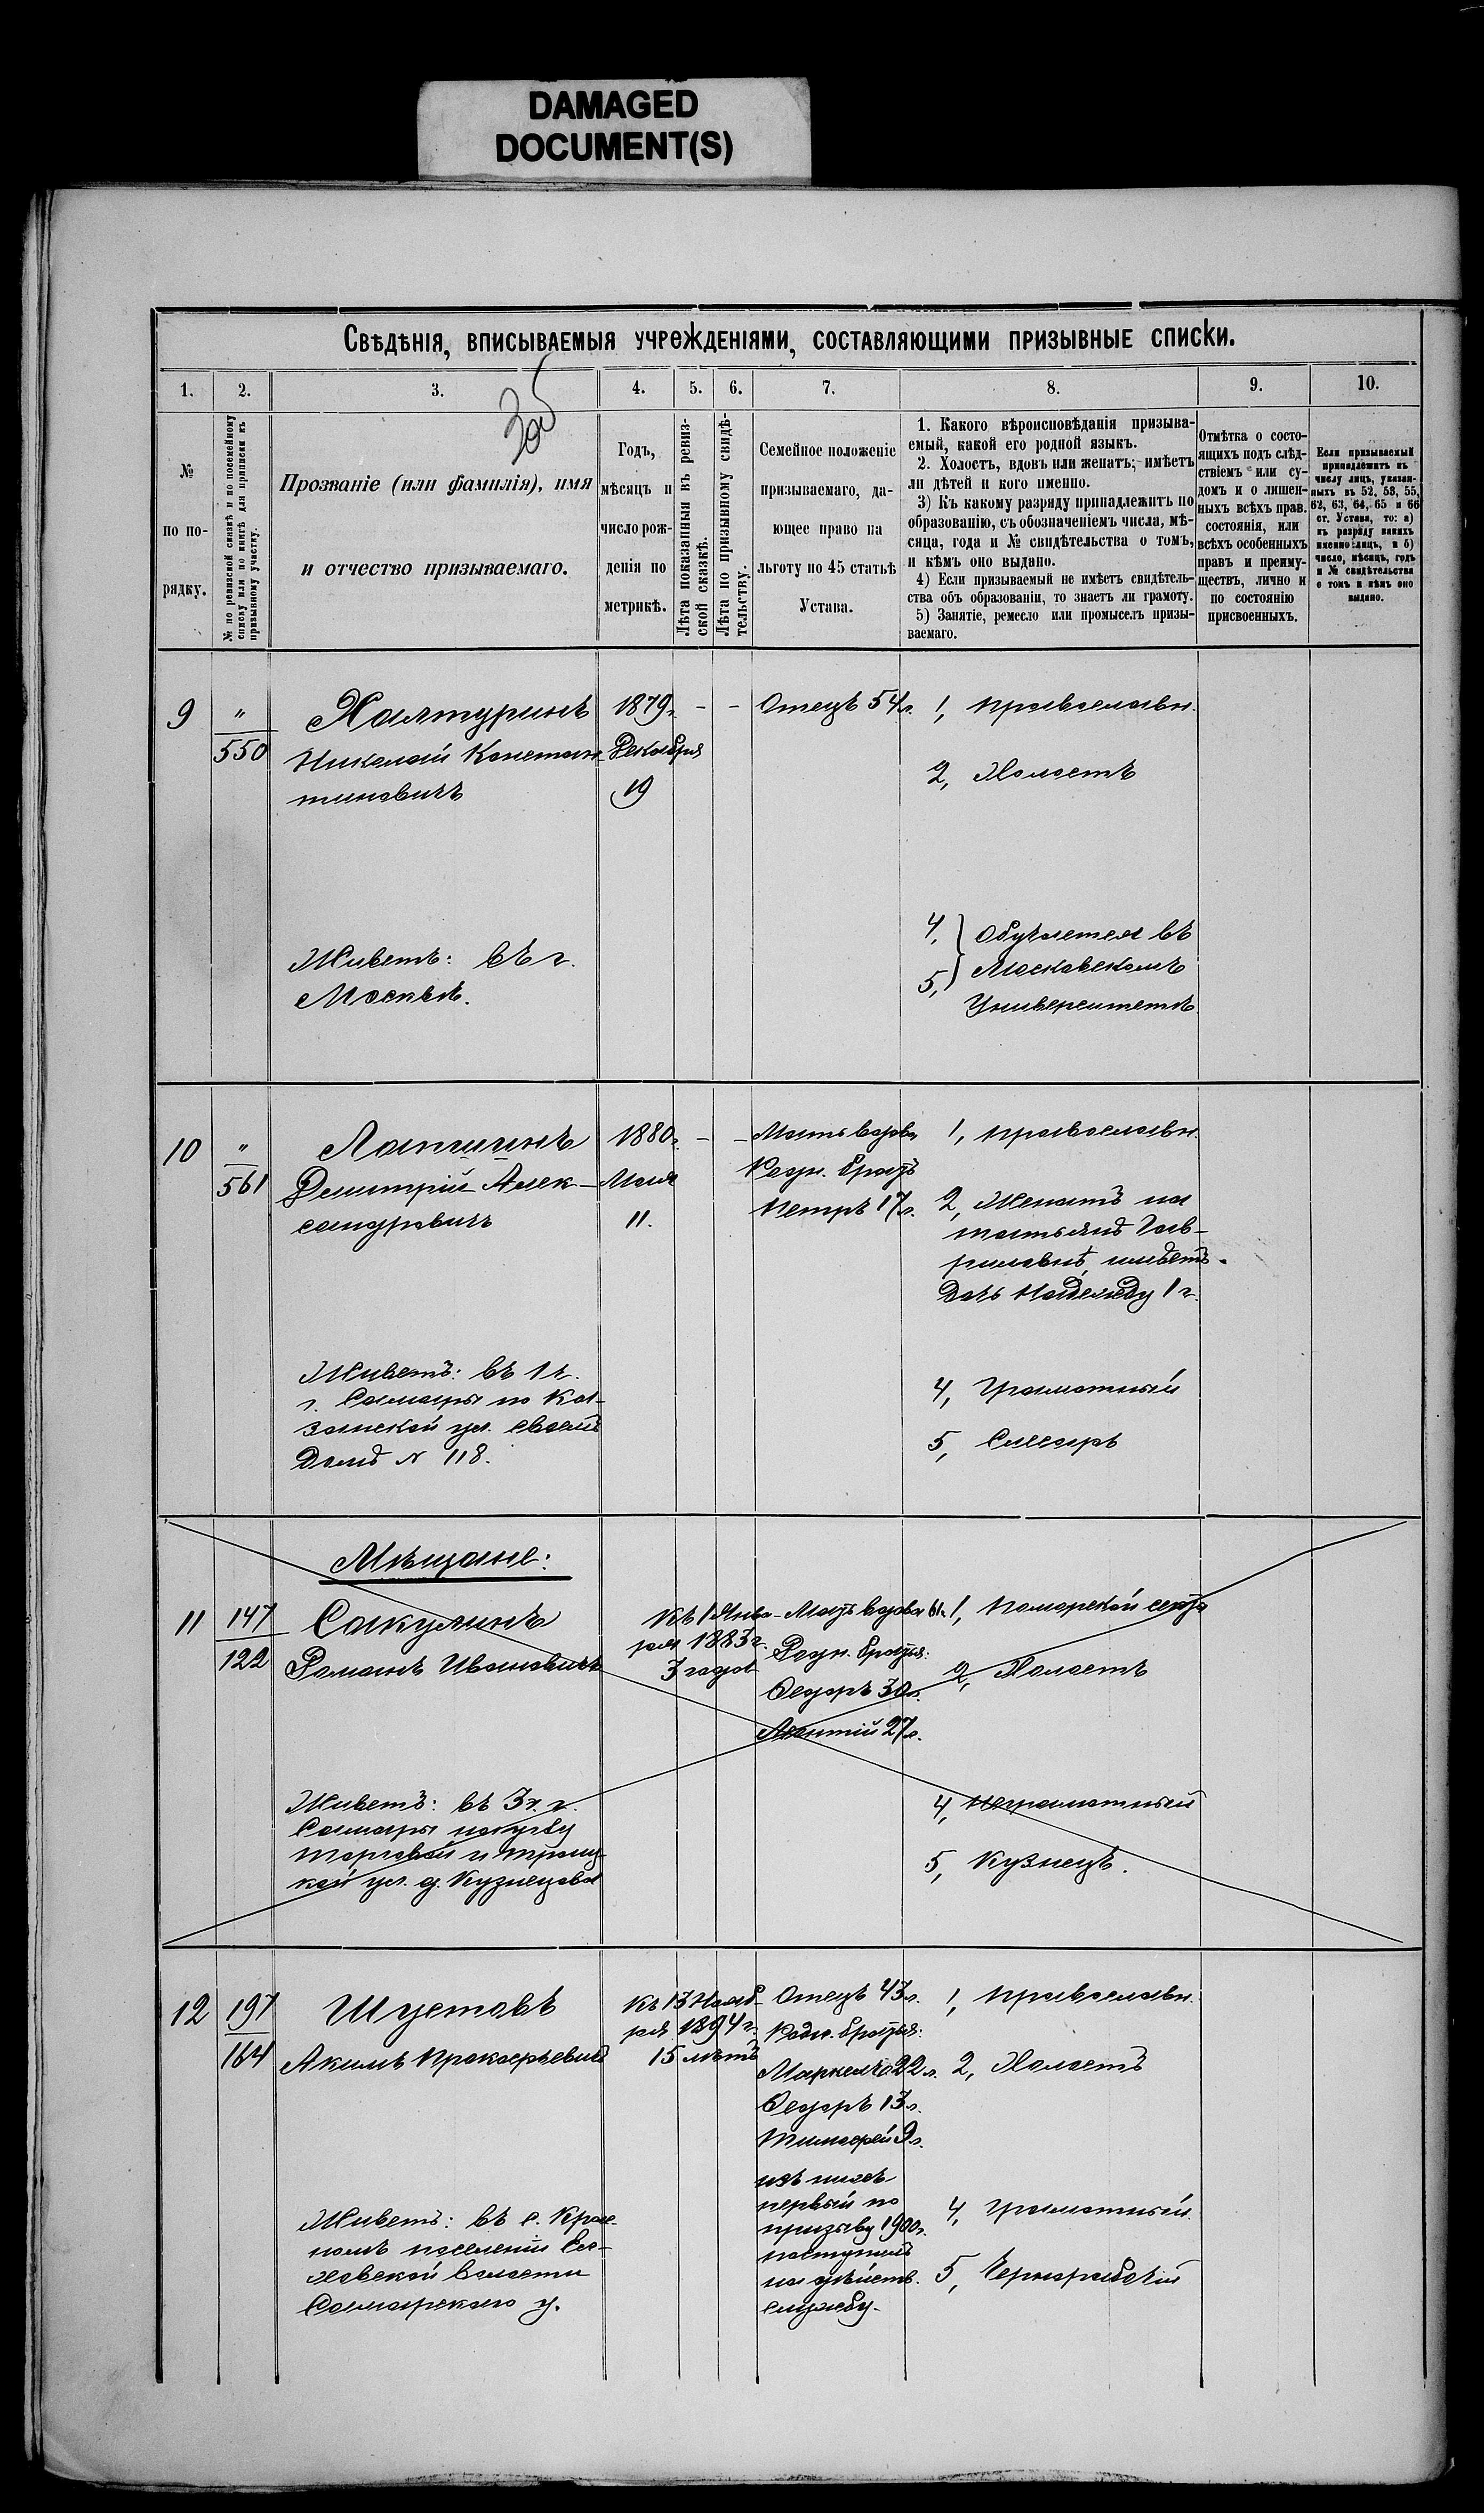 DAMAGED
DOCUMENT(S)
Свѣдѣнія, вписываемыя учрежденіями, составляющими призывные списки.
1. 2. 3. 4. 5. 6. 7. 8. 9. 10.
№
по по-
рядку.
№ по ревизской сказкѣ и по посемейному
списку или по книгѣ для приписки къ
призывному участку.
Прозваніе (или фамилія), имя
и отчество призываемаго.
Годъ,
мѣсяцъ и
число рож-
денія по
метрикѣ.
Лѣта показанныя въ ревиз-
ской сказкѣ.
Лѣта по призывному свидѣ-
тельству.
Семейное положеніе
призываемаго, да-
ющее право на
льготу по 45 статьѣ
Устава.
1. Какого вѣроисповѣданія призыва-
емый, какой его родной языкъ.
2. Холостъ, вдовъ или женатъ; имѣетъ
ли дѣтей и кого именно.
3) Къ какому разряду принадлежитъ по
образованію, съ обозначеніемъ числа, мѣ-
сяца, года и № свидѣтельства о томъ,
и кѣмъ оно выдано.
4) Если призываемый не имѣетъ свидѣтель-
ства объ образованіи, то знаетъ ли грамоту.
5) Занятіе, ремесло или промыселъ призы-
ваемаго.
Отмѣтка о состо-
ящихъ подъ слѣд-
ствіемъ или су-
домъ и о лишен-
ныхъ всѣхъ прав.
состоянія, или
всѣхъ особенныхъ
правъ и преиму-
ществъ, лично и
по состоянію
присвоенныхъ.
Если призываемый
принадлежитъ къ
числу лицъ, указан-
ныхъ въ 52, 53, 55,
62, 63, 64, 65 и 66
ст. Устава, то: а)
къ разряду какихъ
именно лицъ, и б)
число, мѣсяцъ, годъ
и № свидѣтельства
о томъ и кѣмъ оно
выдано.
9
"
550
Халтуринъ
Николай Констан-
тиновичъ
Живетъ: въ г.
Москвѣ.
1879г.
Декабря
19
– –
Отецъ 54л.
1, православн.
2, Холостъ
4,
5,
Обучается въ
Московскомъ
Университетѣ
10
"
561
Лапшинъ
Дмитрій Алек-
сандровичъ
Живетъ: въ 1 ч.
г. Самары по Ка-
занской ул. своемъ
домѣ № 118.
1880г.
Мая
11.
– –
Мать вдова
Родн. братъ
Петръ 17л.
1, православн.
2, Женатъ на
Татьянѣ Гав-
риловнѣ, имѣетъ
дочь Надежду 1 г.
4, грамотный
5, Слесарь
Мѣщане:
11
147
122
Сакулинъ
Романъ Ивановичъ
Живетъ: въ 3 ч. г.
Самары по углу
Торговой и Троиц-
кой ул. д. Кузнецова
Къ 1 Янва-
ря 1883г.
3 года
Мать вдова 61.
Родн. братья:
Ѳедоръ 30л.
Леонтій 27л.
1, поморской секты
2, Холостъ
4, неграмотный
5, Кузнецъ.
12
197
164
Шустовъ
Акимъ Прокофьевичъ
Живетъ: въ с. Крас-
номъ поселеніи
волости
Самарскаго у.
Къ 13 Нояб-
ря 1894г.
15 лѣтъ
Отецъ 43л.
Родн. братья:
Маркелъ 22л.
Ѳедоръ 13л.
Тимофей 9л.
изъ нихъ
первый по
призыву 1900г.
поступилъ
на дѣйств.
службу.
1, православн.
2, Холостъ
4, грамотный.
5, Чернорабочій